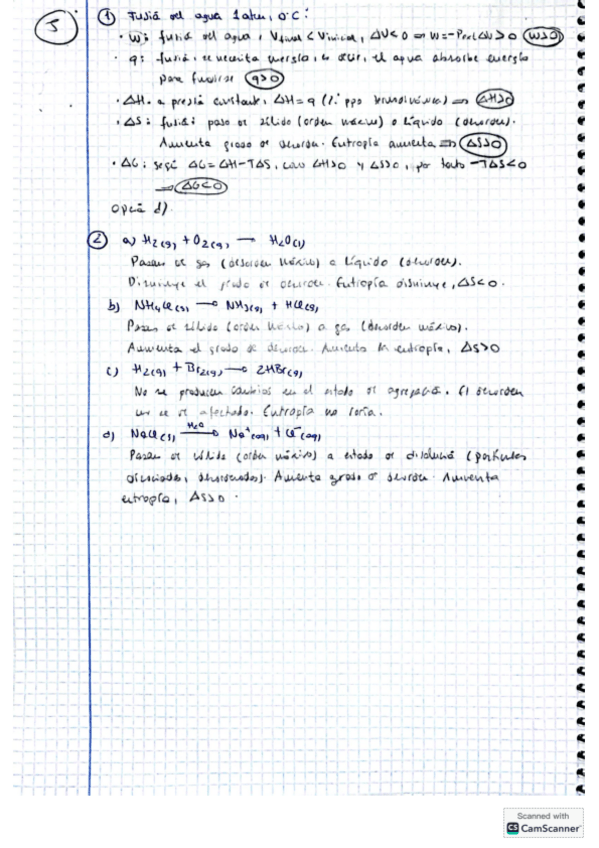 5
① Fusió del agua 1 atm, 0°C:
· w: fusió del agua, Vfinal < Vinicial, ΔV<0 ⇒ w=-Pext ΔV>0 (w>0)
· q: fusió, se necesita energía, es decir, el agua absorbe energía
para fundirse (q>0)
· ΔH. a presió constante, ΔH=q (1er ppo termodinámica) ⇒ (ΔH>0)
· ΔS: fusió: paso de sólido (orden máximo) a líquido (desorden).
Aumenta grado de desorden. Entropía aumenta ⇒ (ΔS>0)
· ΔG: segú ΔG=ΔH-TΔS, como ΔH>0 y ΔS>0, por tanto -TΔS<0
⇒ (ΔG<0)
Opció d).
② a) H2(g) + O2(g) → H2O(l)
Pasan de gas (desorden máximo) a líquido (desorden).
Disminuye el grado de desorden. Entropía disminuye, ΔS<0.
b) NH4Cl(s) → NH3(g) + HCl(g)
Pasas de sólido (orden máximo) a gas (desorden máximo).
Aumenta el grado de desorden. Aumenta la entropía, ΔS>0
c) H2(g) + Br2(g) → 2HBr(g)
No se producen cambios en el estado de agregació. El desorden
no se ve afectado. Entropía no varía.
d) NaCl(s) → H2O Na+(aq) + Cl-(aq)
Pasan de sólido (orden máximo) a estado de disolució (partículas
disociadas, desordenadas). Aumenta grado de desorden. Aumenta
entropía, ΔS>0.
Scanned with
CS CamScanner